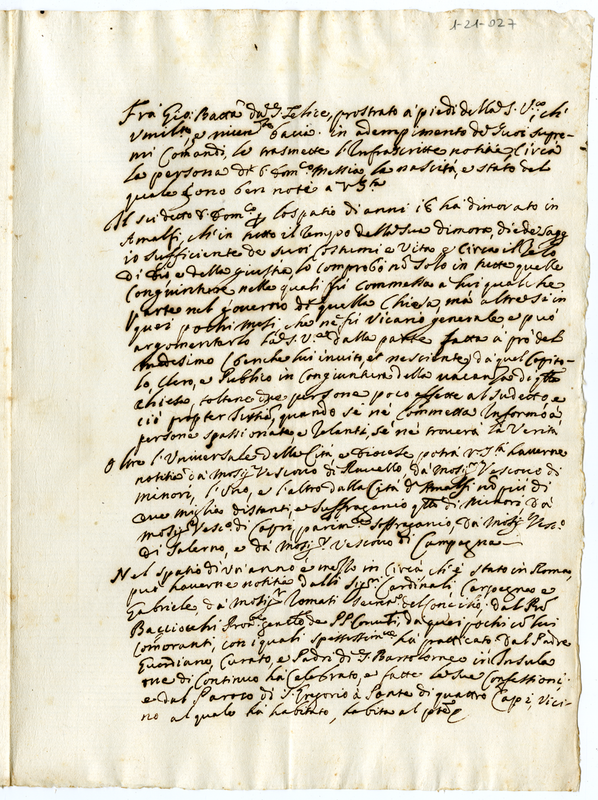 1-21-027
Fra Gio: Batta da S. Felice, prostrato a' piedi della S. V. ch'
umilte, e niuen baccia. in adempimento de' Suoi supre-
mi Comandi, le trasmette l'Infrascritte notitie, Circa
la persona di Dom.co Mattia, la nascita, e stato del
quale sono ben note a V. S.ta
Il sudetto D. Dom.co lo spatio di anni 16 ha dimorato in
Amalfi, ch' in tutto il tempo della sua dimora, diede sagg-
io sufficiente de suoi Costumi e Vita, e Circa il Zelo
di Dio e della giustitia, lo comprobò nò solo in tutte quelle
Congiunture nelle quali fù commessa a lui qualche
parte nel governo di quella Chiesa, mà altresì in
quei pochi mesi, che ne fù Vicario generale, e può
argomentarlo la S. V. dalla parte fatta a prò del
medesimo (benche lui invito, et nesciente) da quel Capito-
lo, Clero, e Publico in Congiuntura della vacanza di qlla
chiesa, toltene due persone poco affette al sudetto, e
ciò propter Justitiam, quando se nè Commetta Informo à
persone spassionate, e Zelanti, se nè troverà la Verità
Oltre l'Universale della Città e Diocese, potrà V. S.ta haverne
notitie da Monsig.r Vescovo di Ravello, da Monsig.r Vescovo di
Minori, l'Uno, e l'altro dalla Città d'Amalfi nò più di
due miglia distanti, e suffraganio qllo di Minori, dà
Monsig.r Vesc.o di Capri, parimte soffraganio, da Monsig.r Vesc.o
di Salerno, e dà Monsig.r Vescovo di Campagna
Nel spatio di un'anno e mezzo in circa ch'è stato in Roma,
può haverne notitie dalli Sig.ri Cardinali, Carpegna e
Gabriele, da Monsig.r Tomasi Secret.o del Concilio, dal Prè
Bacciocchi de PP. Conuti, da quei pochi cò lui
Comoranti, con i quali spessissimte hà pratticato, dal Padre
Guardiano, Curato, e Padri di S. Bartolomeo in Insula
ove di Continuo hà Celebrato, e fatte le sue Confessioni
e dal Paroco di S. Gregorio à Ponte di quattro Capi, Vici-
no al quale hà habitato, habita al pnte